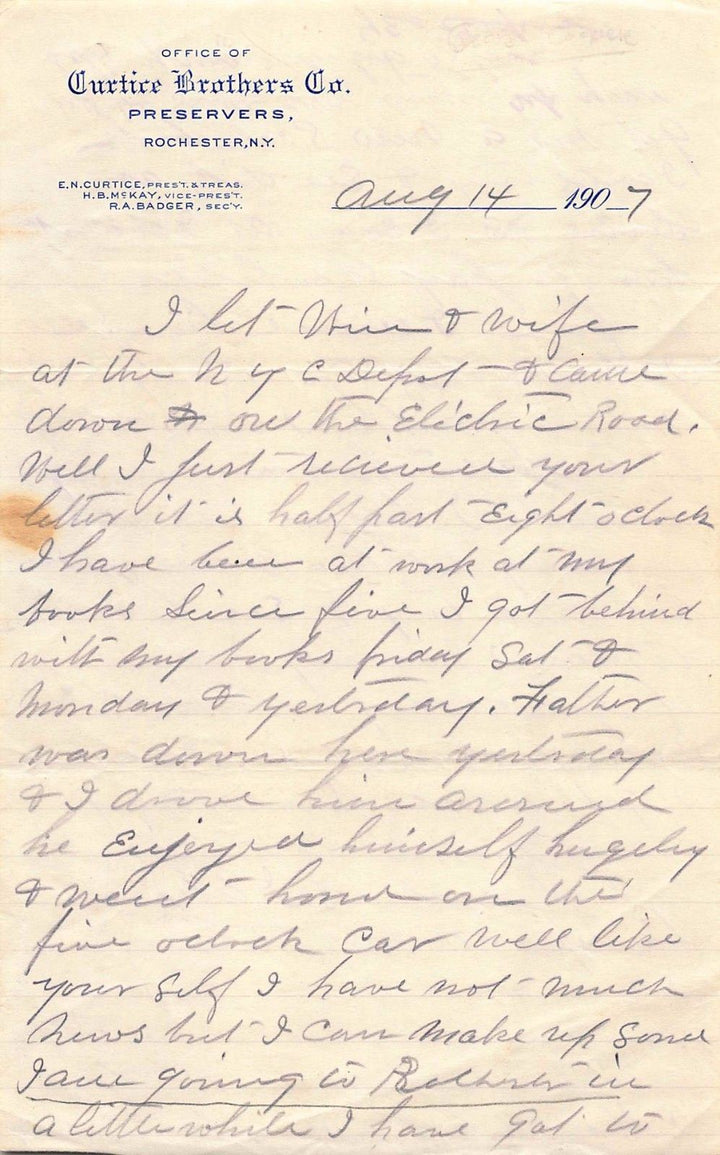 OFFICE OF
Curtice Brothers Co.
PRESERVERS,
ROCHESTER, N.Y.
E.N. CURTICE, PRES'T. & TREAS.
H.B. McKAY, VICE-PRES'T.
R.A. BADGER, SEC'Y.
Aug 14 1907
I let & wife
at the N Y C Depot & Came
down on the Electric Road.
Well I just recieved your
letter it is half past Eight oclock
I have been at work at my
books Since five I got behind
with my books friday Sat &
Monday & yesterday. Father
was down here yesterday
& I drove him around
he Enjoyed himself hugeley
& went home on the
five oclock Car well like
your Self I have not much
News but I can make up Some
I am going to in
a little while I have got to